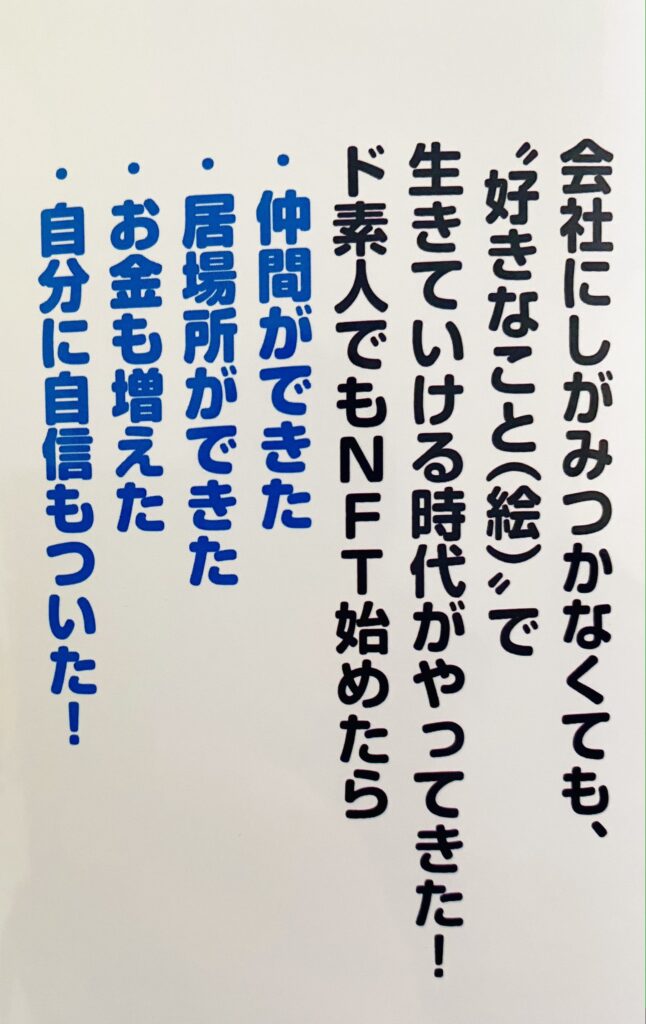 会社にしがみつかなくても、
〝好きなこと(絵)〟で
生きていける時代がやってきた!
ド素人でもNFT始めたら
・仲間ができた
・居場所ができた
・お金も増えた
・自分に自信もついた!